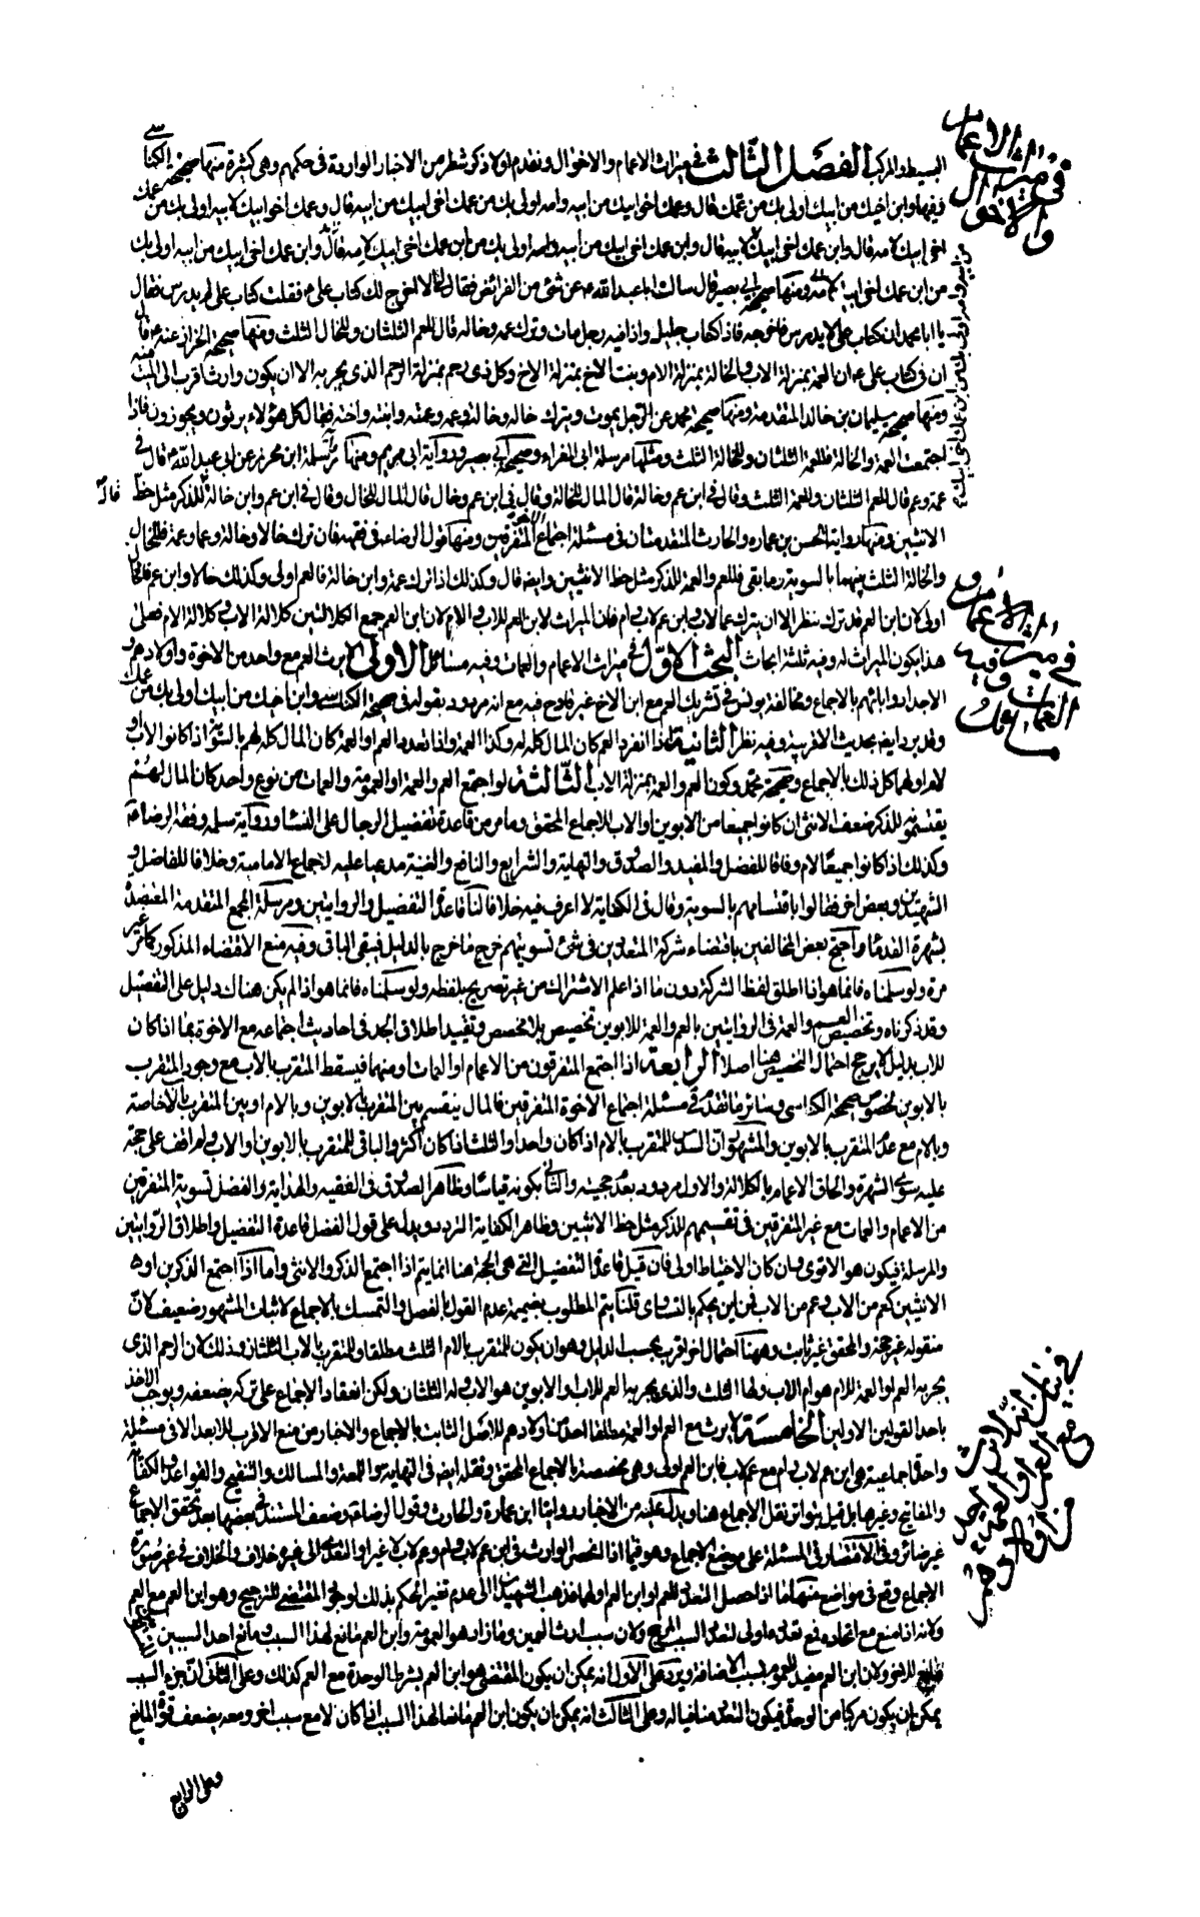 البسيط والمركب الفصل الثالث في ميراث الاعمام والاخوال ونقدم اولا ذكر شطر من الاخبار الواردة في حكمهم وهي كثيرة منها صحيحة الكناسي
في ميراث الاعمام والاخوال
وفيها وابن اخيك من ابيك اولى بك من عمك قال وعمك اخو ابيك من ابيه وامه اولى بك من عمك اخي ابيك من ابيه قال وعمك اخو ابيك لابيه اولى بك من عمك
اخي ابيك لامه قال وابن عمك اخي ابيك من ابيه وامه اولى بك من ابن عمك اخي ابيك لابيه قال وابن عمك اخي ابيك من ابيه اولى بك
من ابن عمك اخي ابيك لامه ومنها صحيحة ابي بصير قال سالت ابا عبد الله ع عن شئ من الفرائض فقال لي الا اخرج لك كتاب علي ع فقلت كتاب علي لم يدرس فقال
يا ابا محمد ان كتاب علي لا يدرس فاخرجه فاذا كتاب جليل واذا فيه رجل مات وترك عمه وخاله قال للعم الثلثان وللخال الثلث ومنها صحيحة الخزاز عنه ع قال
ان في كتاب علي ع ان العمة بمنزلة الاب والخالة بمنزلة الام وبنت الاخ بمنزلة الاخ وكل ذي رحم بمنزلة الرحم الذي يجر به الا ان يكون وارث اقرب الى الميت منه
ومنها صحيحة سليمان بن خالد المتقدمة ومنها صحيحة محمد عن الرجل يموت ويترك خاله وخالته وعمه وعمته وابنته واخته فقال كل هؤلاء يرثون ويحوزون فاذا
اجتمعت العمة والخالة فللعمة الثلثان وللخالة الثلث ومثلها مرسلة ابي المغراء وصحيحة ابي بصير ورواية ابي مريم ومنها مرسلة ابن محرز عن ابي عبد الله ع قال في
عمة وعم قال للعم الثلثان وللعمة الثلث وقال في ابن عم وخالة قال المال للخالة وقال في ابن عم وخال قال المال للخال وقال في ابن عم وابن خالة للذكر مثل حظ
الانثيين ومنها روايتا الحسن بن عمارة والحارث المتقدمتان في مسئلة اجتماع المتفرقين ومنها قول الرضا ع في فقهه فان ترك خالا وخالة وعما وعمة فللخال
والخالة الثلث بينهما بالسوية وما بقي فللعم والعمة للذكر مثل حظ الانثيين وايضا قال وكذلك اذا ترك عمة وابن خالة فالعم اولى وكذلك خالا وابن عم فالخال
اولى لان ابن العم قد ترك نظر الا ان يترك عما لاب وابن عم لاب وام فان الميراث لابن العم للاب والام لان ابن العم جمع الكلالتين كلالة الاب وكلالة الام فعلى
هذا يكون الميراث له وفيه ثلثة ابحاث البحث الاول في ميراث الاعمام والعمات وفيه مسائل الاولى لا يرث العم مع واحد من الاخوة واولادهم و
في ميراث الاعمام والعمات وفيه مسائل
الاجداد وابائهم بالاجماع ومخالفة يونس في تشريك العم مع ابن الاخ غير قادح فيه مع انه مردود بقوله في صحيحة الكناسي وابن اخيك من ابيك اولى بك من عمك
وقد يرد ايضا بحديث الاقربية وفيه نظر الثانية اذا انفرد العم كان المال كله له وكذا العمة واذا تعدد العم او العمة كان المال كله لهم بالسوية اذا كانوا لاب او
لام او لهما كل ذلك بالاجماع وصحيحة محمد وكون العم والعمة بمنزلة الاب الثالثة لو اجتمع العم والعمة او العمومة والعمات من نوع واحد كان المال بينهم
يقتسمونه للذكر ضعف الانثى ان كانوا جميعا من الابوين او الاب للاجماع المحقق وما مر من قاعدة تفضيل الرجال على النساء ورواية سلمة وفقه الرضا ع
وكذلك اذا كانوا جميعا لام وفاقا للفضل والمفيد والصدوق والنهاية والشرايع والنافع والغنية مدعيا عليه اجماع الامامية وخلافا للفاضل و
الشهيدين وبعض اخر فقالوا باقتسامهم بالسوية وقال في الكفاية لا اعرف فيه خلافا لنا قاعدة التفضيل والروايتين ومرسلة المجمع المتقدمة المعتضدة
بشهرة القدماء واحتج بعض المخالفين باقتضاء شركة المتعددين في شئ تسويتهم خرج ما خرج بالدليل فيبقى الباقي وفيه منع الاقتضاء المذكور كما مر غير
مرة ولو سلمناه فانما هو اذا اطلق لفظ الشركة دون ما اذا علم الاشتراك من غير تصريح بلفظه ولو سلمناه فانما هو اذا لم يكن هناك دليل على التفضيل
وقد ذكرناه وتخصيص العم والعمة في الروايتين بالعم والعمة للابوين تخصيص بلا مخصص وتقييد اطلاق الجد في احاديث اجتماعه مع الاخوة بما اذا كان
للاب بدليل لا يرجح احتمال التخصيص هنا اصلا الرابعة اذا اجتمع المتفرقون من الاعمام او العمات او منهما فيسقط المتقرب بالاب مع وجود المتقرب
بالابوين بخصوص صحيحة الكناسي وسائر ما تقدم في مسئلة اجتماع الاخوة المتفرقين فالمال ينقسم بين المتقرب بالابوين وبالام او بين المتقرب بالاب خاصة
وبالام مع عدم المتقرب بالابوين والمشهور ان السدس للمتقرب بالام اذا كان واحدا والثلث اذا كان اكثر والباقي للمتقرب بالابوين او الاب ولم اقف على حجة
عليه سوى الشهرة والحاق الاعمام بالكلالة والاول مردود بعدم حجيته والثاني بكونه قياسا وظاهر الصدوق في الفقيه والهداية والفضل تسوية المتفرقين
من الاعمام والعمات مع غير المتفرقين في تقسيمهم للذكر مثل حظ الانثيين وظاهر الكفاية التردد ويدل على قول الفضل قاعدة التفضيل واطلاق الروايتين
والمرسلة فيكون هو الاقوى وان كان الاحتياط اولى فان قيل قاعدة التفضيل التي هي الحجة هنا انما يتم اذا اجتمع الذكر والانثى واما اذا اجتمع الذكرين او
الانثيين كعم من الاب وعم من الاب فمن اين يحكم بالتساوي قلنا يتم المطلوب بضميمة عدم القول بالفصل والتمسك بالاجماع لاثبات المشهور ضعيف لان
منقوله غير حجة والمحقق غير ثابت وههنا احتمال اخر اقرب بحسب الدليل وهو ان يكون للمتقرب بالام الثلث مطلقا وللمتقرب بالاب الثلثان وذلك لان الرحم الذي
يجر به العم او العمة للام هو ام الاب ولها الثلث والذي يجر به العم للاب او الابوين هو الاب وله الثلثان ولكن انعقاد الاجماع على تركه يضعفه ويوجب الاخذ
باحد القولين الاولين الخامسة لا يرث مع العم او العمة مطلقا احد من اولادهم للاصل الثابت بالاجماع والاخبار من منع الاقرب للابعد الا في مسئلة
في بيان انه لا يرث مع العم او العمة احد من اولادهم
واحدة اجماعية هي ابن عم لاب وام مع عم لاب فابن العم اولى وهي مخصصة بالاجماع المحقق ونقله ايضا في النهاية واللمعة والمسالك والتنقيح والقواعد والكفاية
والمفاتيح وغيرها بل قيل بتواتر نقل الاجماع هنا ويدل عليه من الاخبار روايتا ابن عمارة والحارث وقول الرضا ع وضعف المستند في بعضها بعد تحقق الاجماع
غير ضائر وفي الاقتصار في المسئلة على موضع الاجماع وهو فيما اذا انحصر الوارث في ابن عم لاب وام وعم لاب لا غير او التعدي الى غيره خلاف والخلاف في غير صورة
الاجماع وقع في مواضع منها ما اذا حصل التعدد للعم او ابن العم او لهما فذهب الشهيدان الى عدم تغير الحكم بذلك لوجود المقتضي للترجيح وهو ابن العم مع العم
ولانه اذا منع مع اتحاده فمع تعدده اولى لتعدد السبب المرجح ولان سبب ارث العمين وما زاد هو العمومة وابن العم مانع لهذا السبب ومانع احد السببين
مانع للاخر ولان ابن العم مفيد للعموم بسبب الاضافة ويرد على الاول انه يمكن ان يكون المقتضي هو ابن العم بشرط الوحدة مع العم كذلك وعلى الثاني ان جزء السبب
يمكن ان يكون مركبا من الوحدة فيكون التعدد منافيا له وعلى الثالث انه يمكن ان يكون ابن العم مانعا لهذا السبب اذا كان لا مع سبب اخر ومعه يضعف قوة المانع
وعلى الرابع